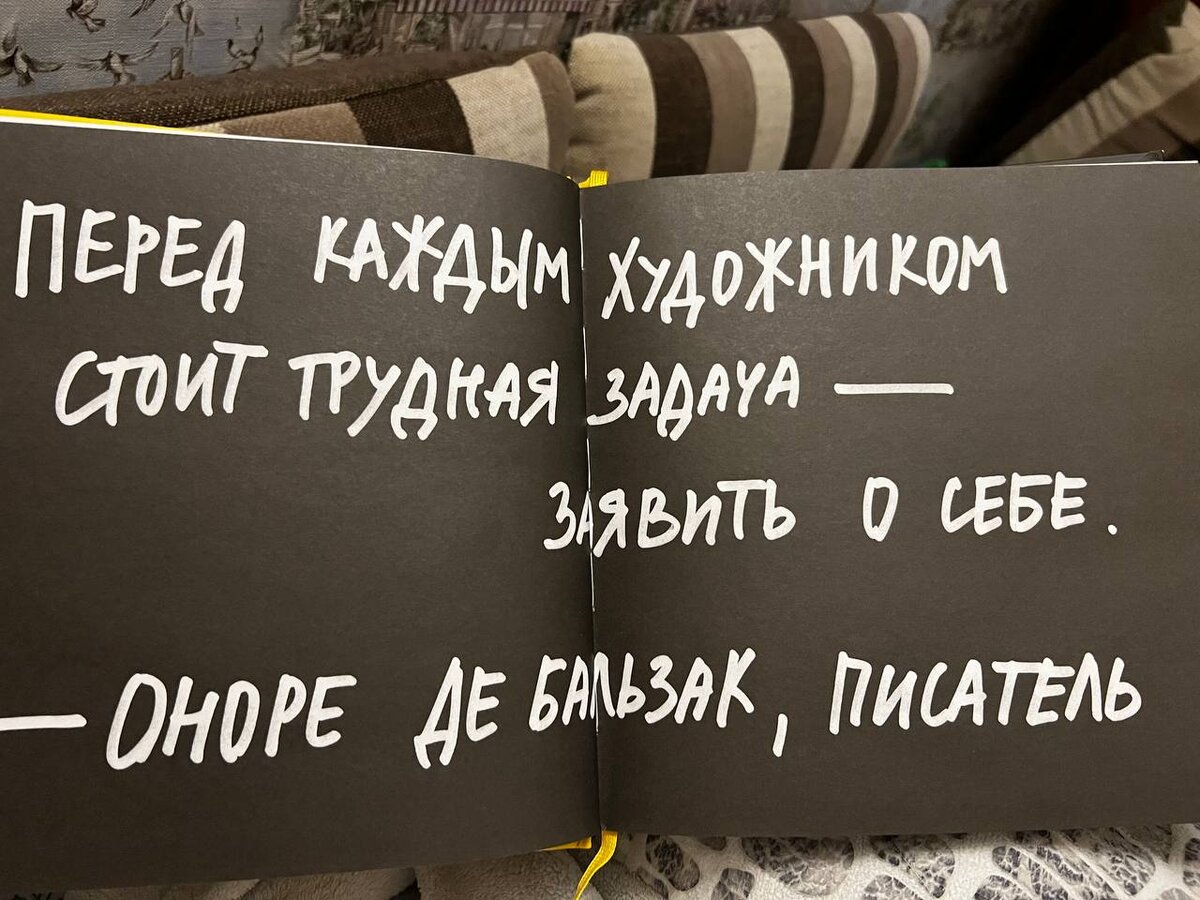 ПЕРЕД КАЖДЫМ ХУДОЖНИКОМ
СТОИТ ТРУДНАЯ ЗАДАЧА —
ЗАЯВИТЬ О СЕБЕ.
— ОНОРЕ ДЕ БАЛЬЗАК, ПИСАТЕЛЬ